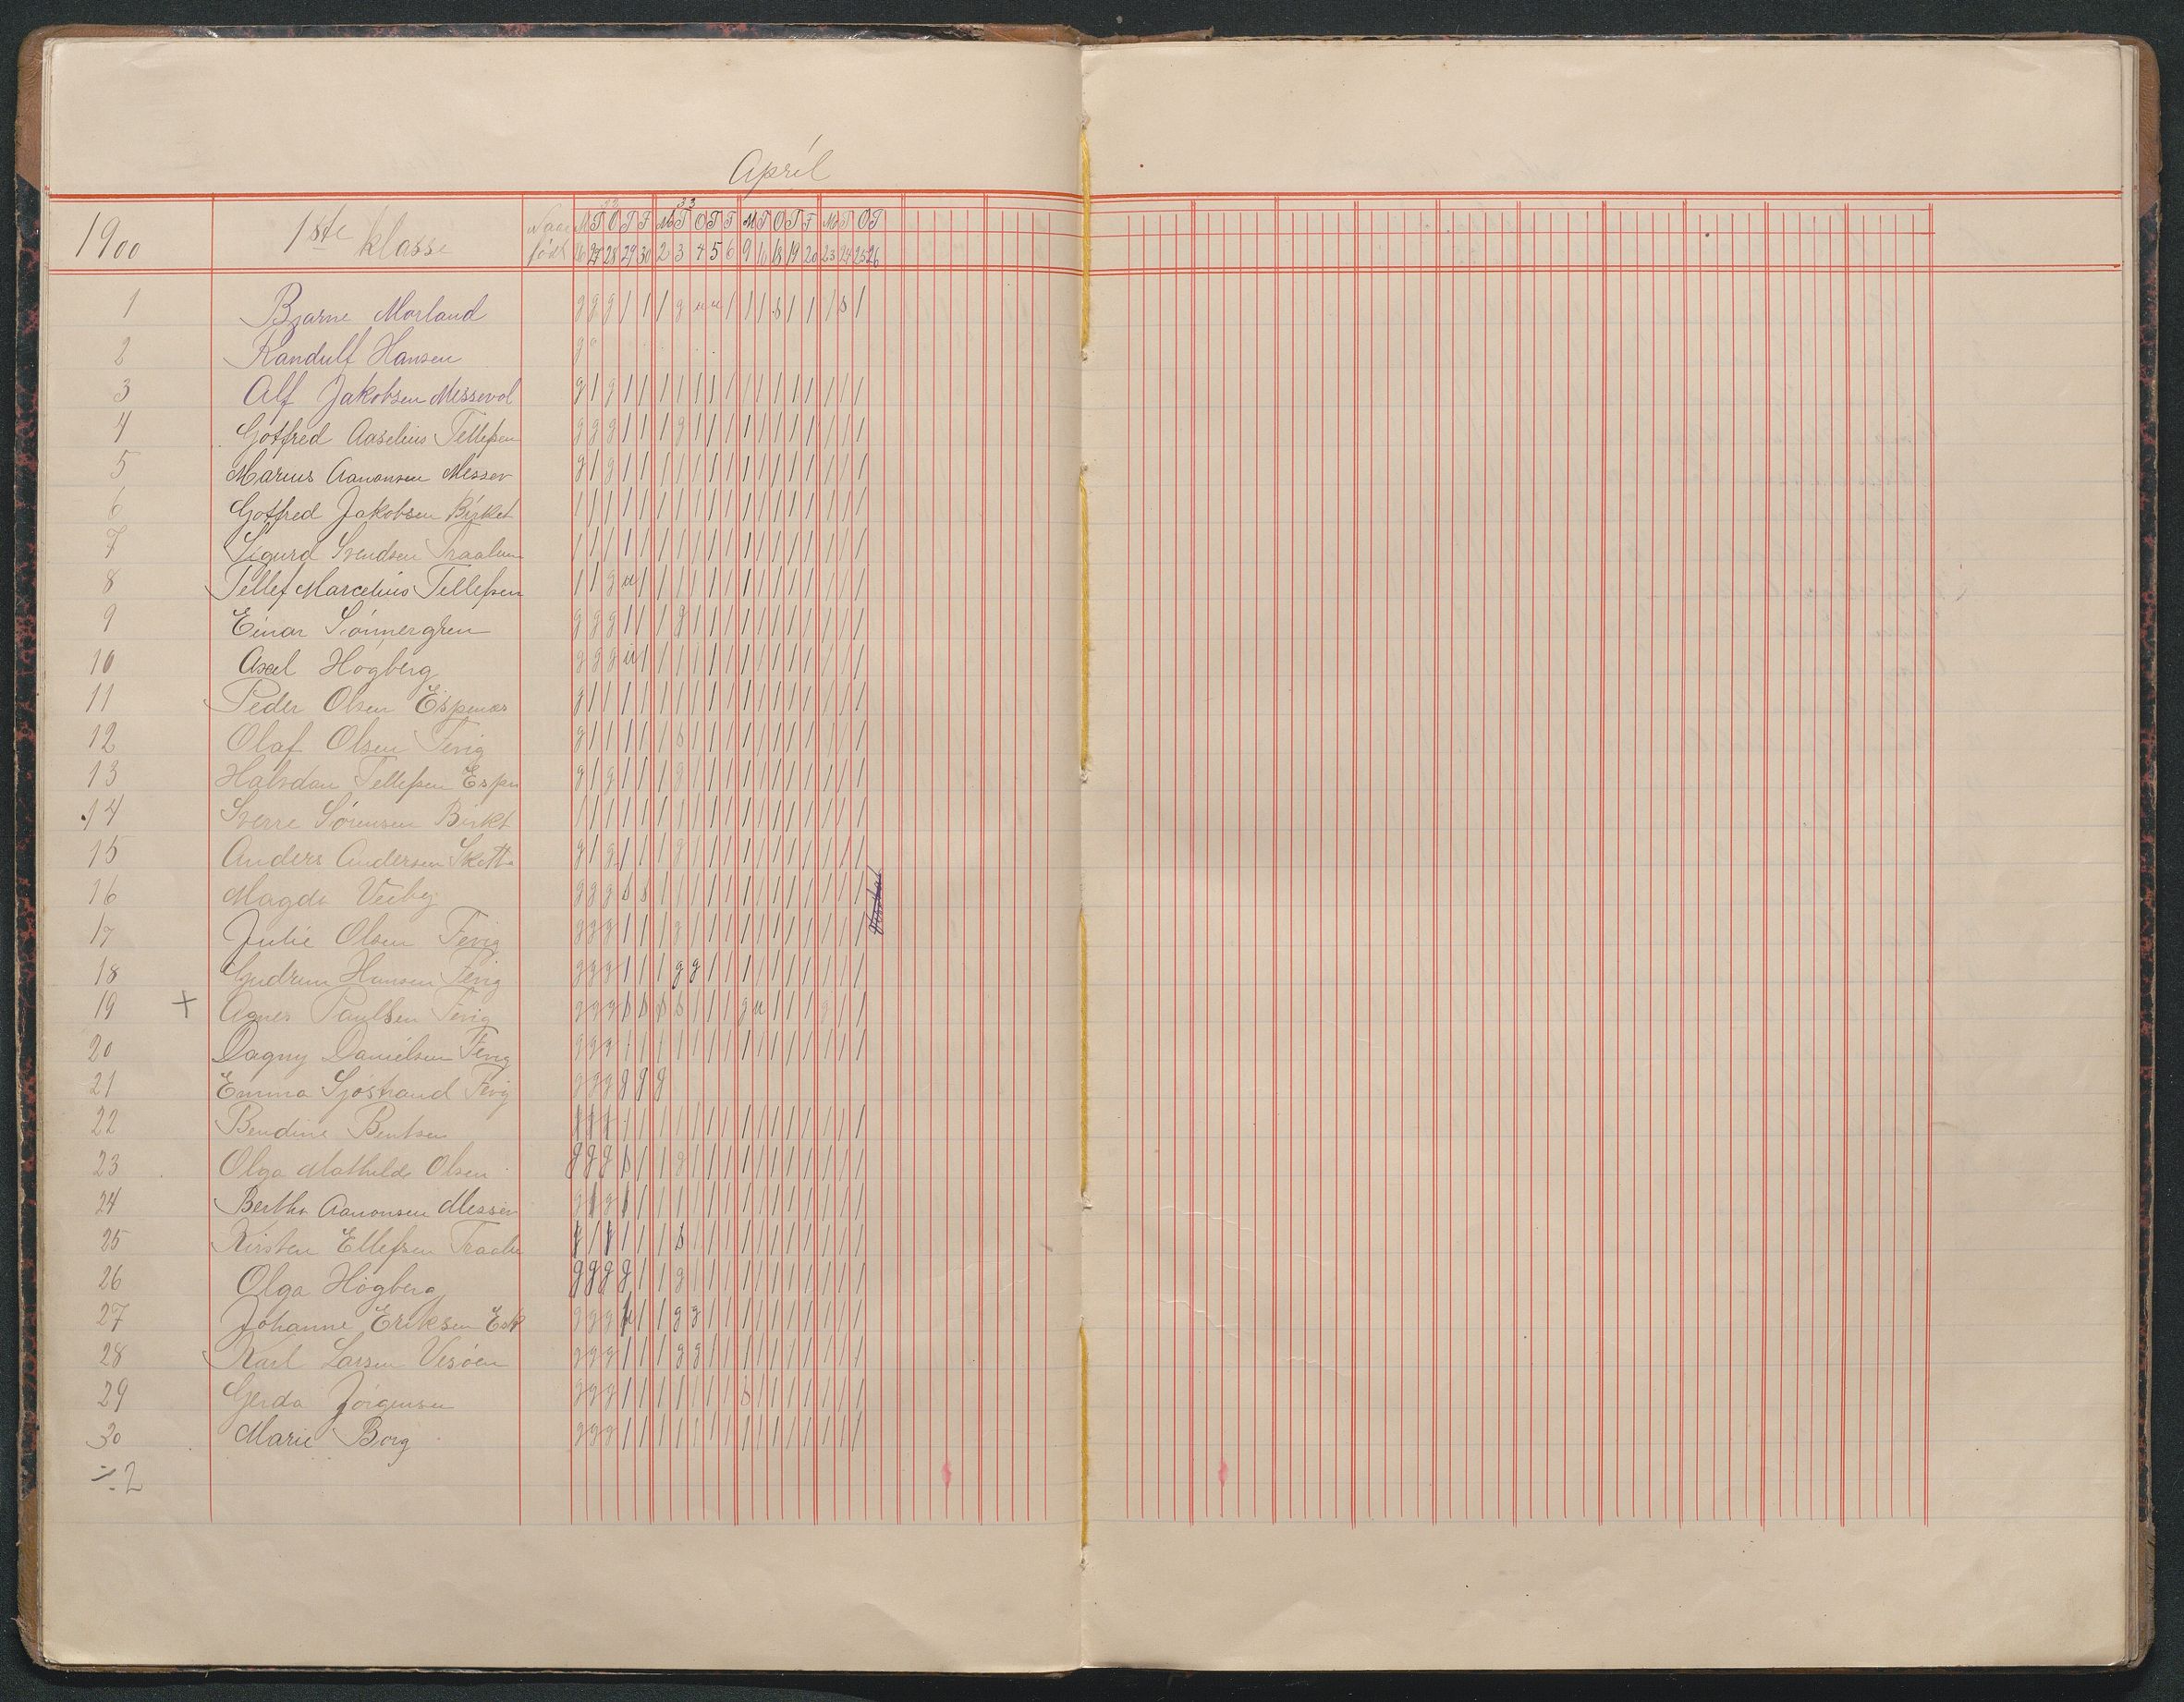 April
32 33
1900 1ste klasse Naar M T O T F M T O T F M T O T F M T O T
født 26 27 28 29 30 2 3 4 5 6 9 10 18 19 20 23 24 25 26
1 Bjarne Morland g g g / / / g u u / / / s / / / s /
2 Randulf Hansen g
3 Alf Jakobsen Messevol g / g / / / / / / / / / / / / / / /
4 Gotfred Aaselius Tellefsen g g g / / / g / / / / / / / / / / /
5 Marius Aanonsen Messev g / g / / / / / / / / / / / / / / /
6 Gotfred Jakobsen Birket / / / / / / / / / / / / / / / / / /
7 Sigurd Svendsen Traalum / / / / / / / / / / / / / / / / / /
8 Tellef Marcelius Tellefsen / / g u / / / / / / / / / / / / / /
9 Einar Sönnergren g g g / / / g / / / / / / / / / / /
10 Axel Högberg g g g u / / / / / / / / / / / / / /
11 Peder Olsen Espenæs g / / / / / / / / / / / / / / / / /
12 Olaf Olsen Fevig g / / / / / s / / / / / / / / / / /
13 Halvdan Tellefsen Espn g / g / / / g / / / / / / / / / / /
14 Sverre Sørensen Birkt / / / / / / / / / / / / / / / / / /
15 Anders Andersen Skott g / g / / / g / / / / / / / / / / /
16 Magda Veiby g g g s s / / / / / / / / / / / / /
17 Julie Olsen Fevig g g g / / / g / / / / / / / / / / /
18 Gudrun Hansen Fevig g g g / / / g g / / / / / / / / / /
19 + Agnes Paulsen Fevig g g g s s s s / / / g u / / / g / /
20 Dagny Danielsen Fevig g g g / / / / / / / / / / / / / / /
21 Emma Sjöstrand Fevig g g g g g g
22 Bendine Bentsen g g g / / / / / / / / / / / / / / /
23 Olga Mathilde Olsen g g g s / / g / / / / / / / / / / /
24 Bertha Aanonsen Messev g / g / / / / / / / / / / / / / / /
25 Kirsten Ellefsen g / g / / / s / / / / / / / / / / /
26 Olga Högberg g g g g / / g / / / / / / / / / / /
27 Johanne Eriksen g g g / / g g / / / / / / / / / /
28 Karl Larsen Vesøen g g g / / / g g / / / / / / / / / /
29 Gerda Jörgensen g g g / / / / / / / s / / / / / / /
30 Marie Borg g g g / / / / / / / / / / / / / / /
÷2